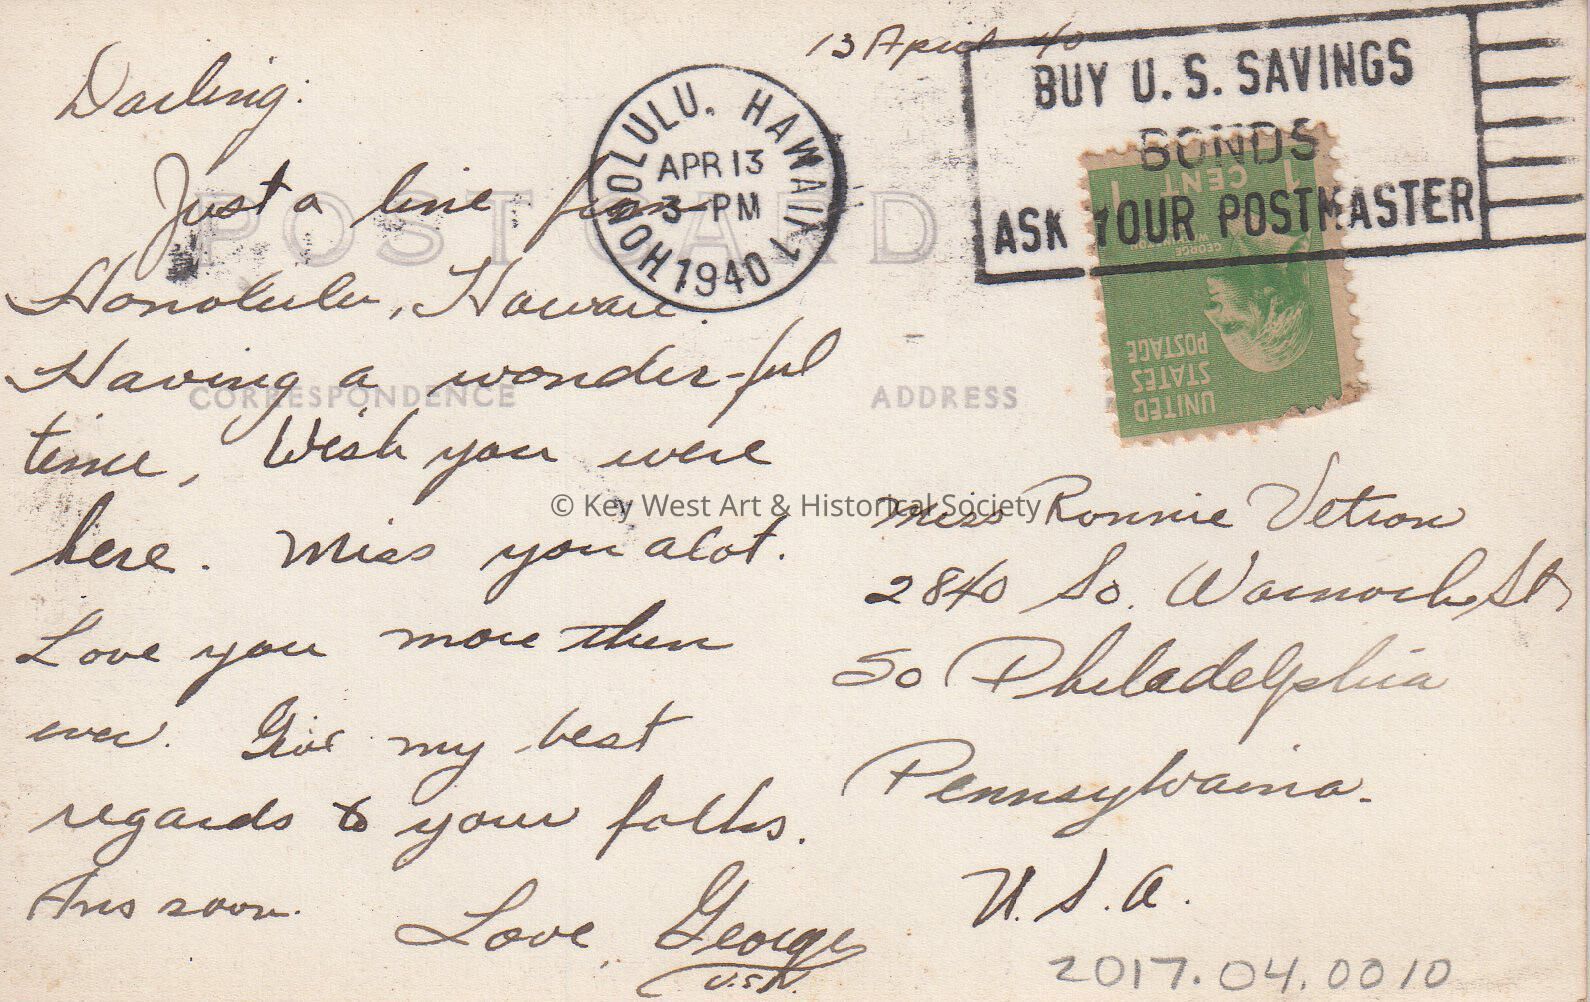 13 April 40
Darling:
Just a line from
Honolulu, Hawaii.
Having a wonder-ful
time, Wish you were
here. Miss you alot.
Love you more then
ever. Give my best
regards to your folks.
Ans soon.
Love, George
U.S.N.
POST CARD
CORRESPONDENCE
ADDRESS
HONOLULU, HAWAII 1
APR 13
3-PM
1940
BUY U.S. SAVINGS
BONDS
ASK YOUR POSTMASTER
UNITED
STATES
POSTAGE
GEORGE
WASHINGTON
1 CENT 1
© Key West Art & Historical Society
Miss Ronnie Vetron
2840 So. Warnock St
So Philadelphia
Pennsylvaina.
U.S.A.
2017.04.0010